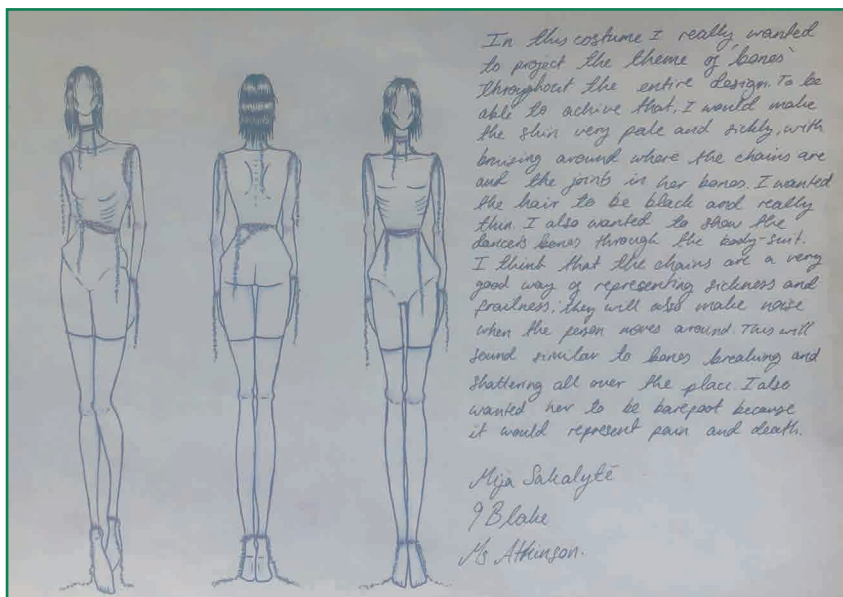 In this costume I really wanted
to project the theme of 'bones'
throughout the entire design. To be
able to achive that, I would make
the skin very pale and sickly, with
bruising around where the chains are
and the joints in her bones. I wanted
the hair to be black and really
thin. I also wanted to show the
dancers bones through the body-suit.
I think that the chains are a very
good way of representing sickness and
frailness; they will also make noise
when the person moves around. This will
sound similar to bones breaking and
shattering all over the place. I also
wanted her to be barefoot because
it would represent pain and death.
Mija Sakalytė
9 Blake
Ms Atkinson.